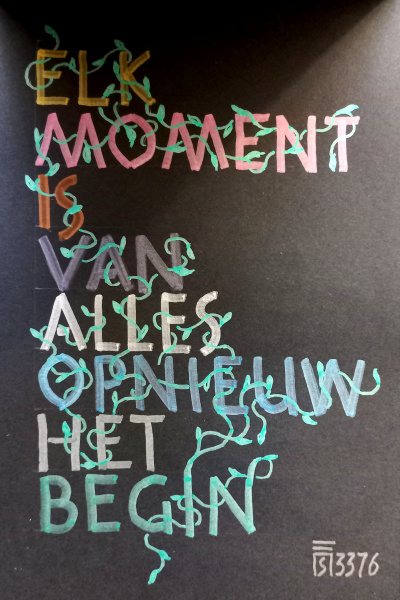 ELK
MOMENT
IS
VAN
ALLES
OPNIEUW
HET
BEGIN
3376